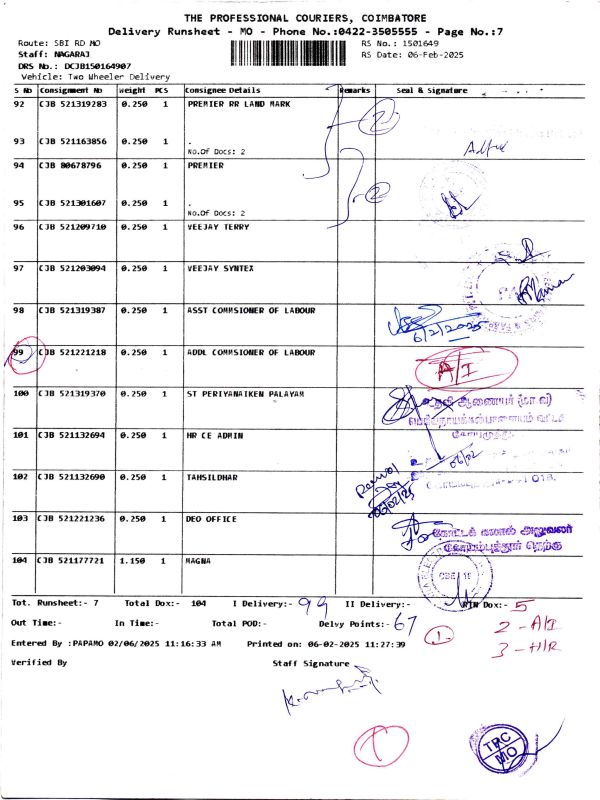 THE PROFESSIONAL COURIERS, COIMBATORE
Delivery Runsheet - MO - Phone No.:0422-3505555 - Page No.:7
Route: SBI RD MO
RS No.: 1501649
Staff: NAGARAJ
RS Date: 06-Feb-2025
DRS No.: DCJB150164907
Vehicle: Two Wheeler Delivery
S No Consignment No Weight PCS Consignee Details Remarks Seal & Signature
92 CJB 521319283 0.250 1 PREMIER RR LAND MARK
2
93 CJB 521163856 0.250 1 .
No.Of Docs: 2
94 CJB 80678796 0.250 1 PREMIER
2
95 CJB 521301607 0.250 1 .
No.Of Docs: 2
96 CJB 521209710 0.250 1 VEEJAY TERRY
97 CJB 521203094 0.250 1 VEEJAY SYNTEX
98 CJB 521319387 0.250 1 ASST COMMSIONER OF LABOUR
6/2/2025
99 CJB 521221218 0.250 1 ADDL COMMSIONER OF LABOUR A/I
100 CJB 521319370 0.250 1 ST PERIYANAIKEN PALAYAM
101 CJB 521132694 0.250 1 HR CE ADMIN
06/02
102 CJB 521132690 0.250 1 TAHSILDHAR
06/02/25
103 CJB 521221236 0.250 1 DEO OFFICE
கோட்டக் கணக் அலுவலர்
கோயம்புத்தூர் தெற்கு
104 CJB 521177721 1.150 1 MAGNA
CBE 19
Tot. Runsheet:- 7 Total Dox:- 104 I Delivery:- 99 II Delivery:- RTN Dox:- 5
Out Time:- In Time:- Total POD:- Delvy Points:- 67
1
2 - A/I
3 - H/R
Entered By :PAPAMO 02/06/2025 11:16:33 AM Printed on: 06-02-2025 11:27:39
Verified By Staff Signature
TRC
MO